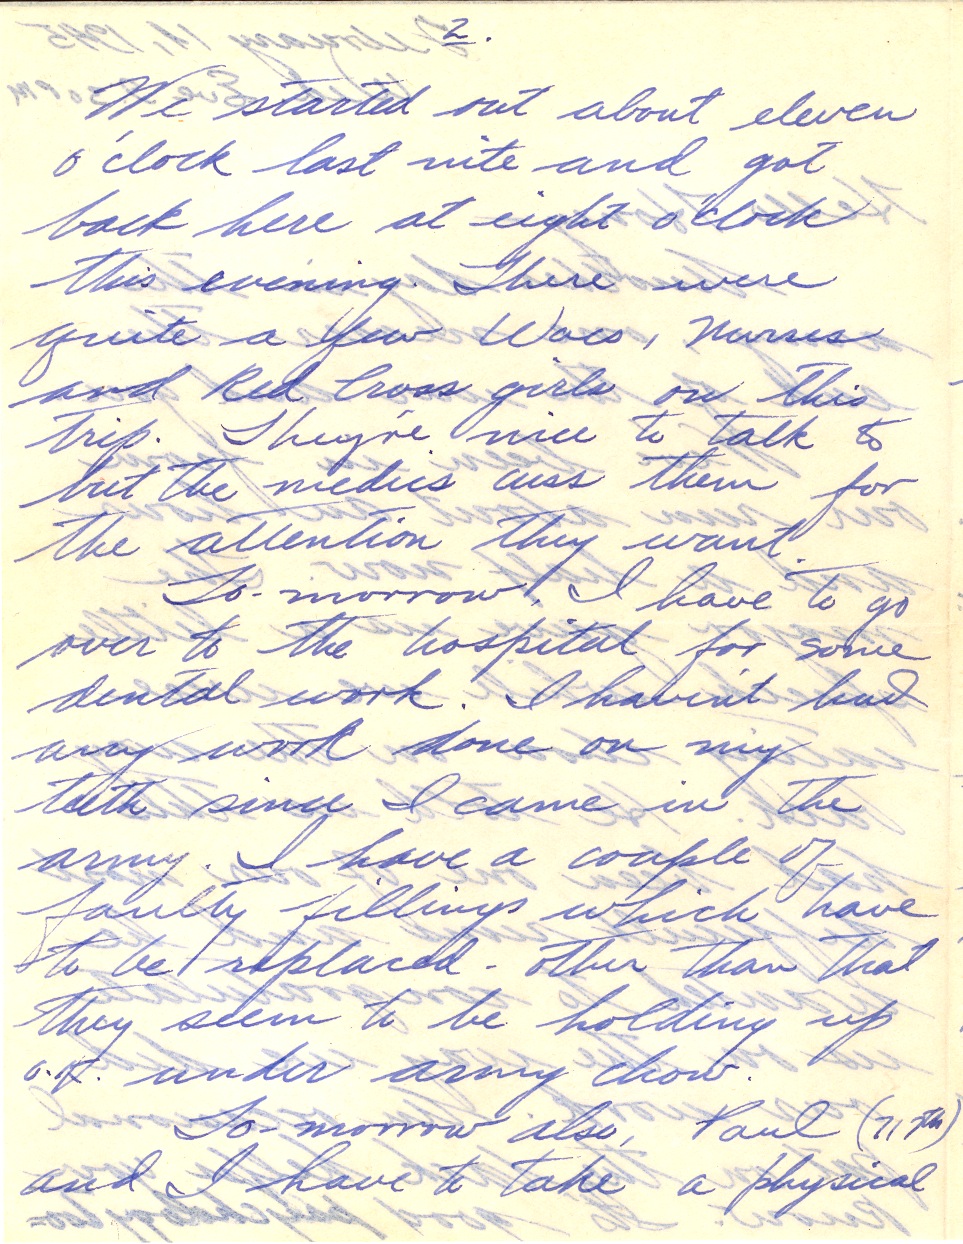 2.
We started out about eleven
o'clock last nite and got
back here at eight o'clock
this evening. There were
quite a few Wacs, Nurses
and Red Cross girls on this
trip. They're nice to talk to
but the medics cuss them for
the attention they want.
To-morrow, I have to go
over to the hospital for some
dental work. I havin't had
any work done on my
teeth since I came in the
army. I have a couple of
faulty fillings which have
to be replaced - other than that
they seem to be holding up
o.k. under army chow.
To-morrow also, Paul
and I have to take a physical